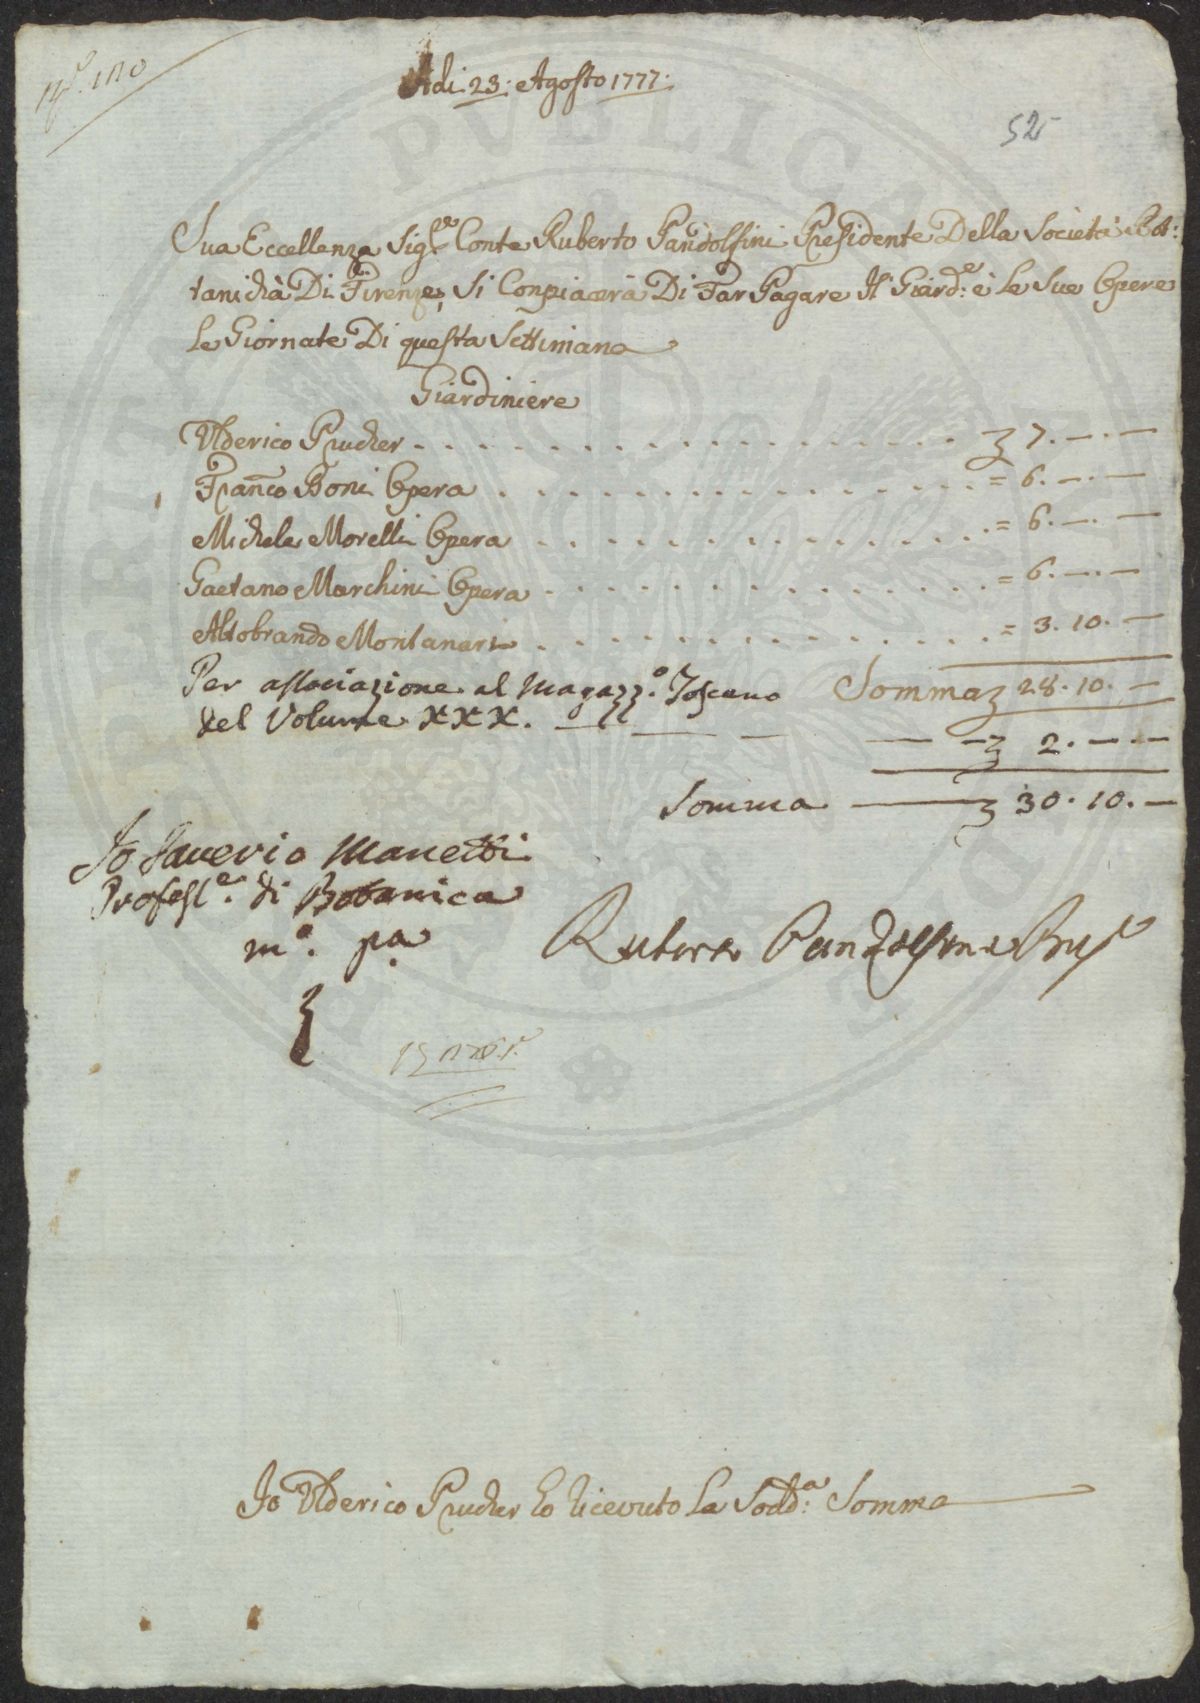 Adi 23: Agosto 1777:
52
Sua Eccellenza Sig.re Conte Ruberto Pandolfini Presidente Della Società Bot:
tanichà Di Firenze, Si Conpiacerà Di Far Pagare Il Giard:e è Le Sue Opere
Le Giornate Di questa Settimana
Giardiniere
Ulderico Prucher . . . . . . . . . . . . . . . . . . . 7. —. —
Franco Boni Opera . . . . . . . . . . . . . . . . = 6. —. —
Michele Morelli Opera . . . . . . . . . . . . . . = 6. —. —
Gaetano Marchini Opera . . . . . . . . . . . . . . = 6. —. —
Aldobrando Montanari . . . . . . . . . . . . . . = 3. 10. —
Somma 28. 10. —
Per associazione al Magazz.o Toscano
del Volume XXX. — — — — 2. — —
Somma — 30. 10. —
Io Saverio Manetti
Profess.e di Botanica
m.o p.a
Ruberto Pandolfini Pres.e
Io Ulderico Prucher ho ricevuto La Sodd:a Somma
PVBLICA